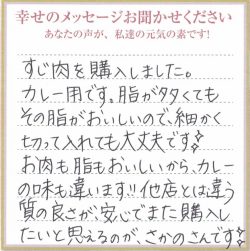 幸せのメッセージお聞かせください
あなたの声が、私達の元気の素です!
すじ肉を購入しました。
カレー用です。脂が多くても
その脂がおいしいので、細かく
切って入れても大丈夫です!
お肉も脂もおいしいから、カレー
の味も違います!!他店とは違う
質の良さが、安心でまた購入し
たいと思えるのが、さかのさんです!